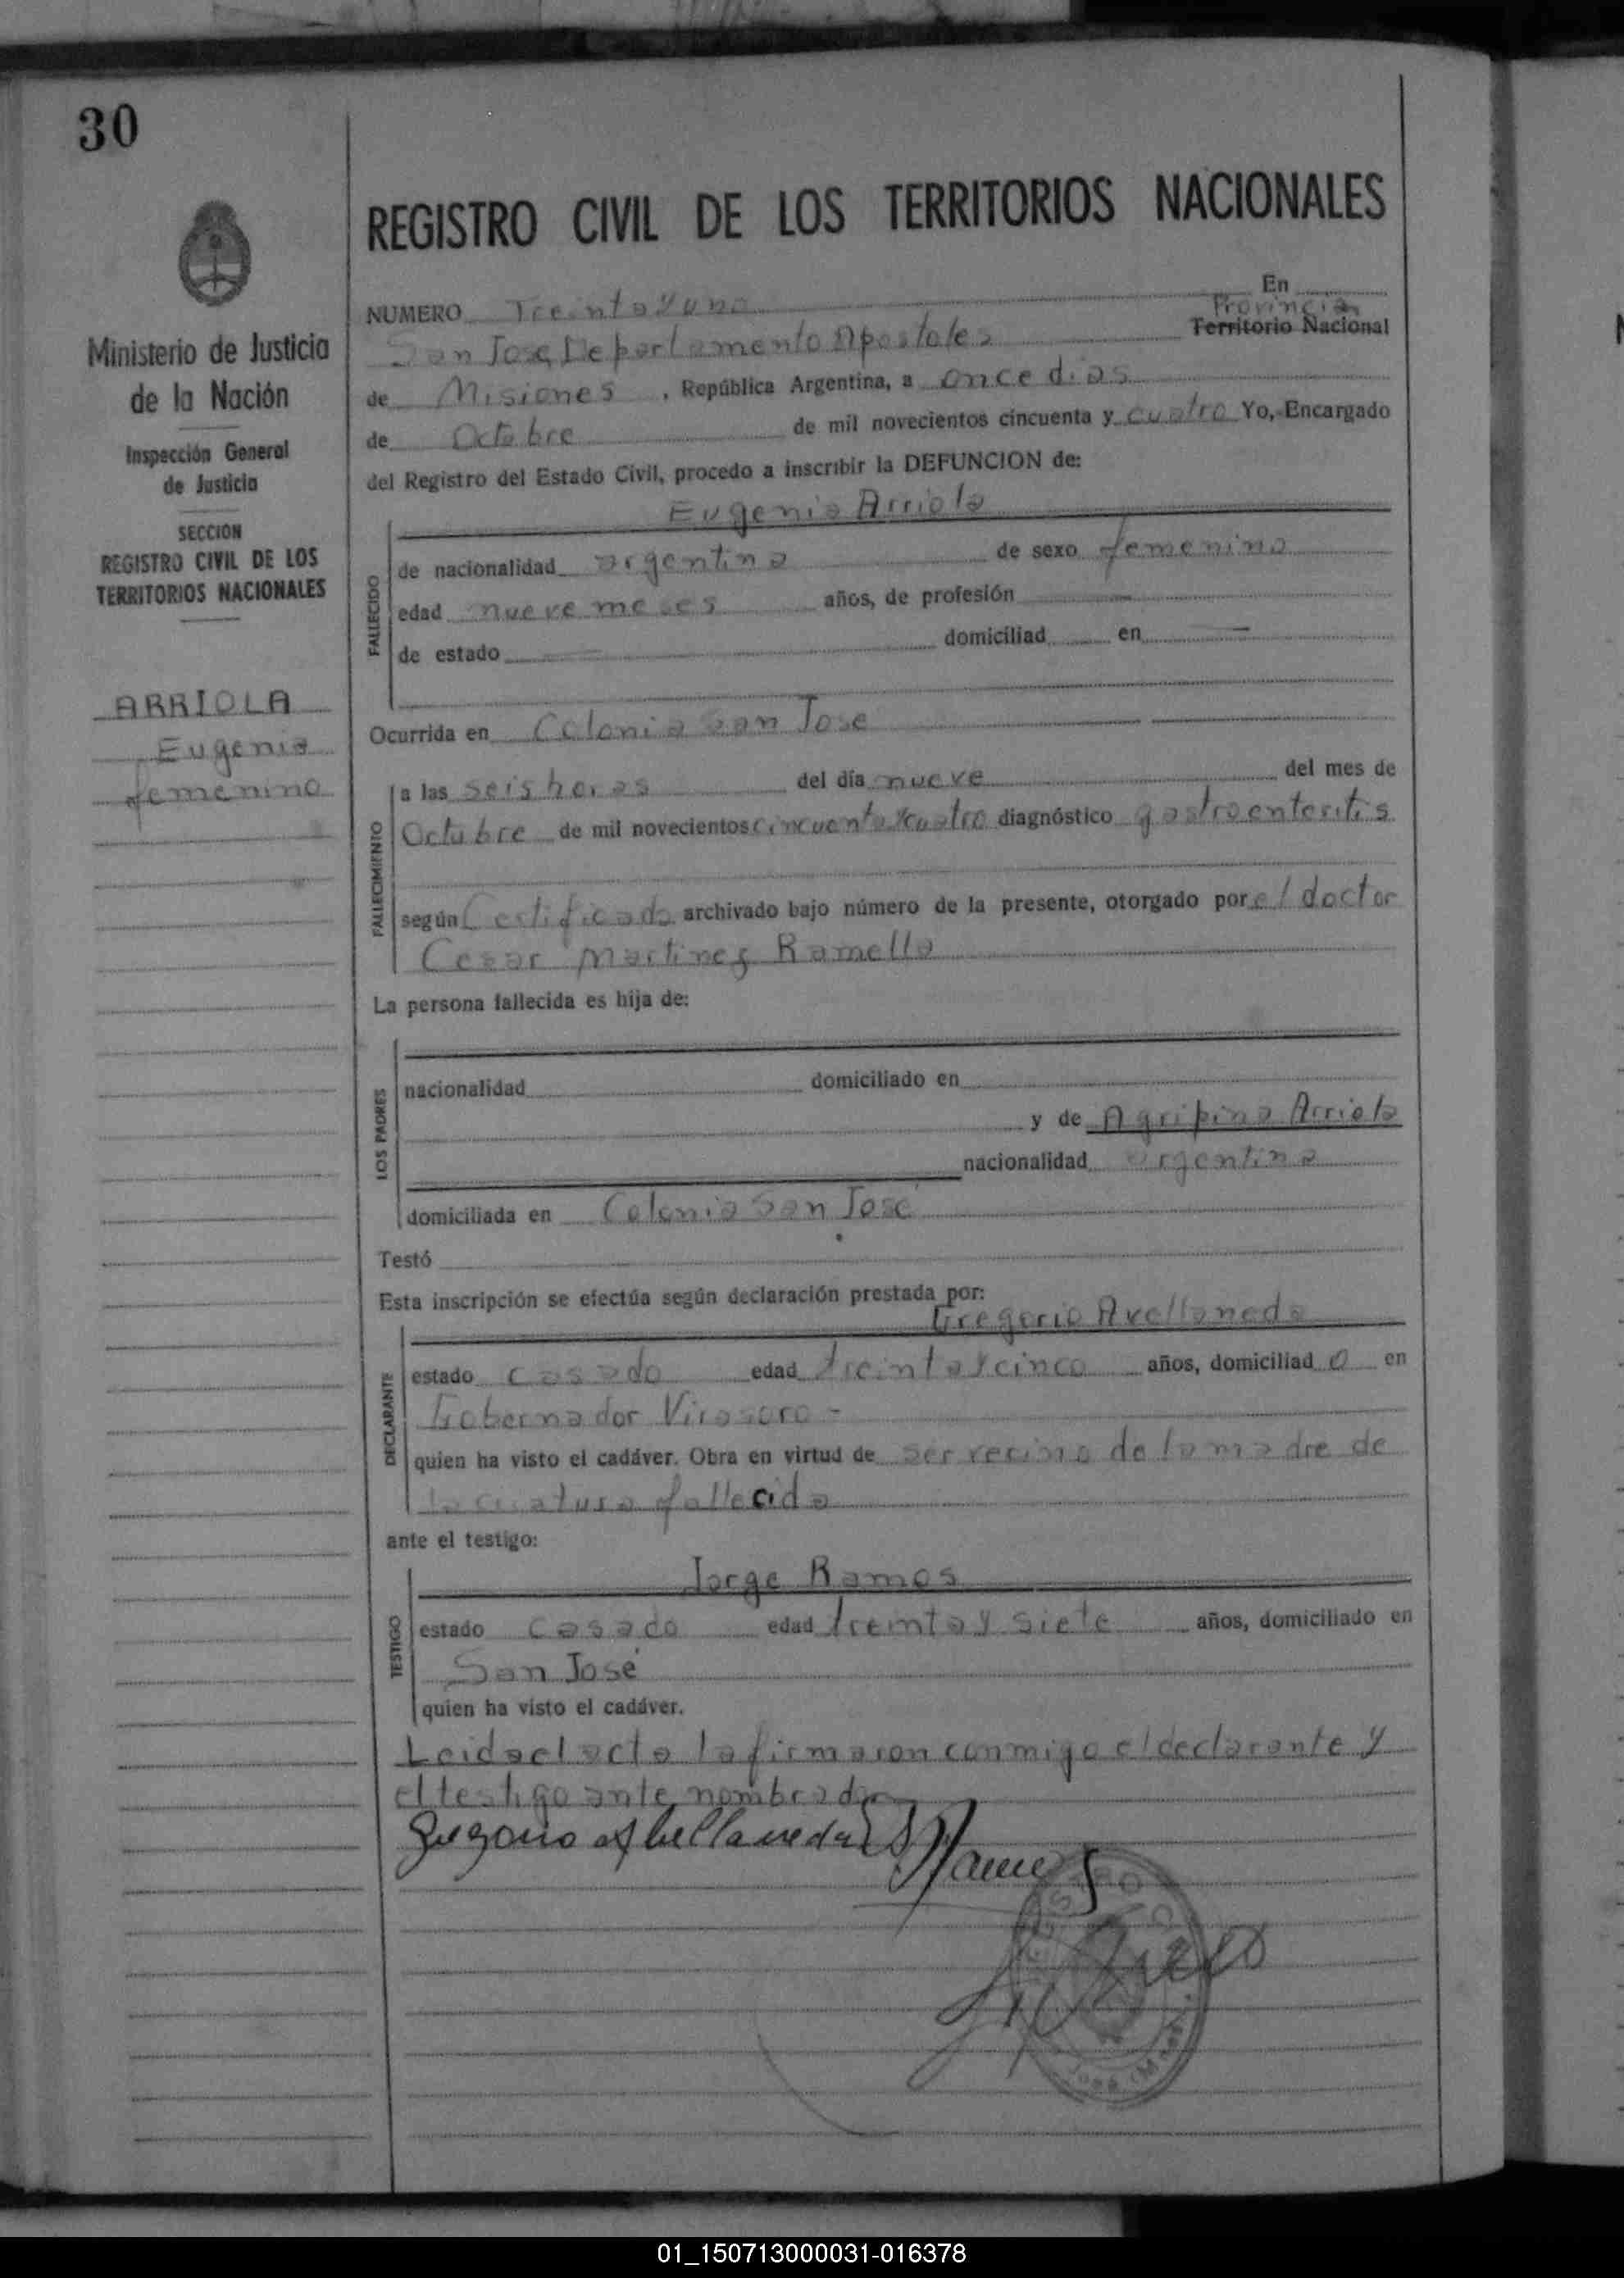 30
REGISTRO CIVIL DE LOS TERRITORIOS NACIONALES
Ministerio de Justicia
de la Nación
Inspección General
de Justicia
SECCION
REGISTRO CIVIL DE LOS
TERRITORIOS NACIONALES
ARRIOLA
Eugenia
femenino
NUMERO Treinta y uno En
Provincia
San José, Departamento Apostoles Territorio Nacional
de Misiones, República Argentina, a once dias
de Octubre de mil novecientos cincuenta y cuatro Yo, Encargado
del Registro del Estado Civil, procedo a inscribir la DEFUNCION de:
Eugenia Arriola
FALLECIDO
de nacionalidad argentina de sexo femenino
edad nueve meses años, de profesión —
de estado — domiciliad en —
Ocurrida en Colonia San Jose
FALLECIMIENTO
a las seis horas del día nueve del mes de
Octubre de mil novecientos cincuenta y cuatro diagnóstico gastroenteritis
según Certificado archivado bajo número de la presente, otorgado por el doctor
Cesar Martinez Ramella
La persona fallecida es hija de:
LOS PADRES
nacionalidad domiciliado en
y de Agripina Arriola
nacionalidad argentina
domiciliada en Colonia San José
Testó
Esta inscripción se efectúa según declaración prestada por:
Gregorio Avellaneda
DECLARANTE
estado casado edad treinta y cinco años, domiciliad o en
Gobernador Virasoro -
quien ha visto el cadáver. Obra en virtud de ser vecino de la madre de
la criatura fallecida
ante el testigo:
Jorge Ramos
TESTIGO
estado casado edad treinta y siete años, domiciliado en
San José
quien ha visto el cadáver.
Leida el acta la firmaron conmigo el declarante y
el testigo ante nombrado
Gregorio Abellaneda Ramos
01_150713000031-016378